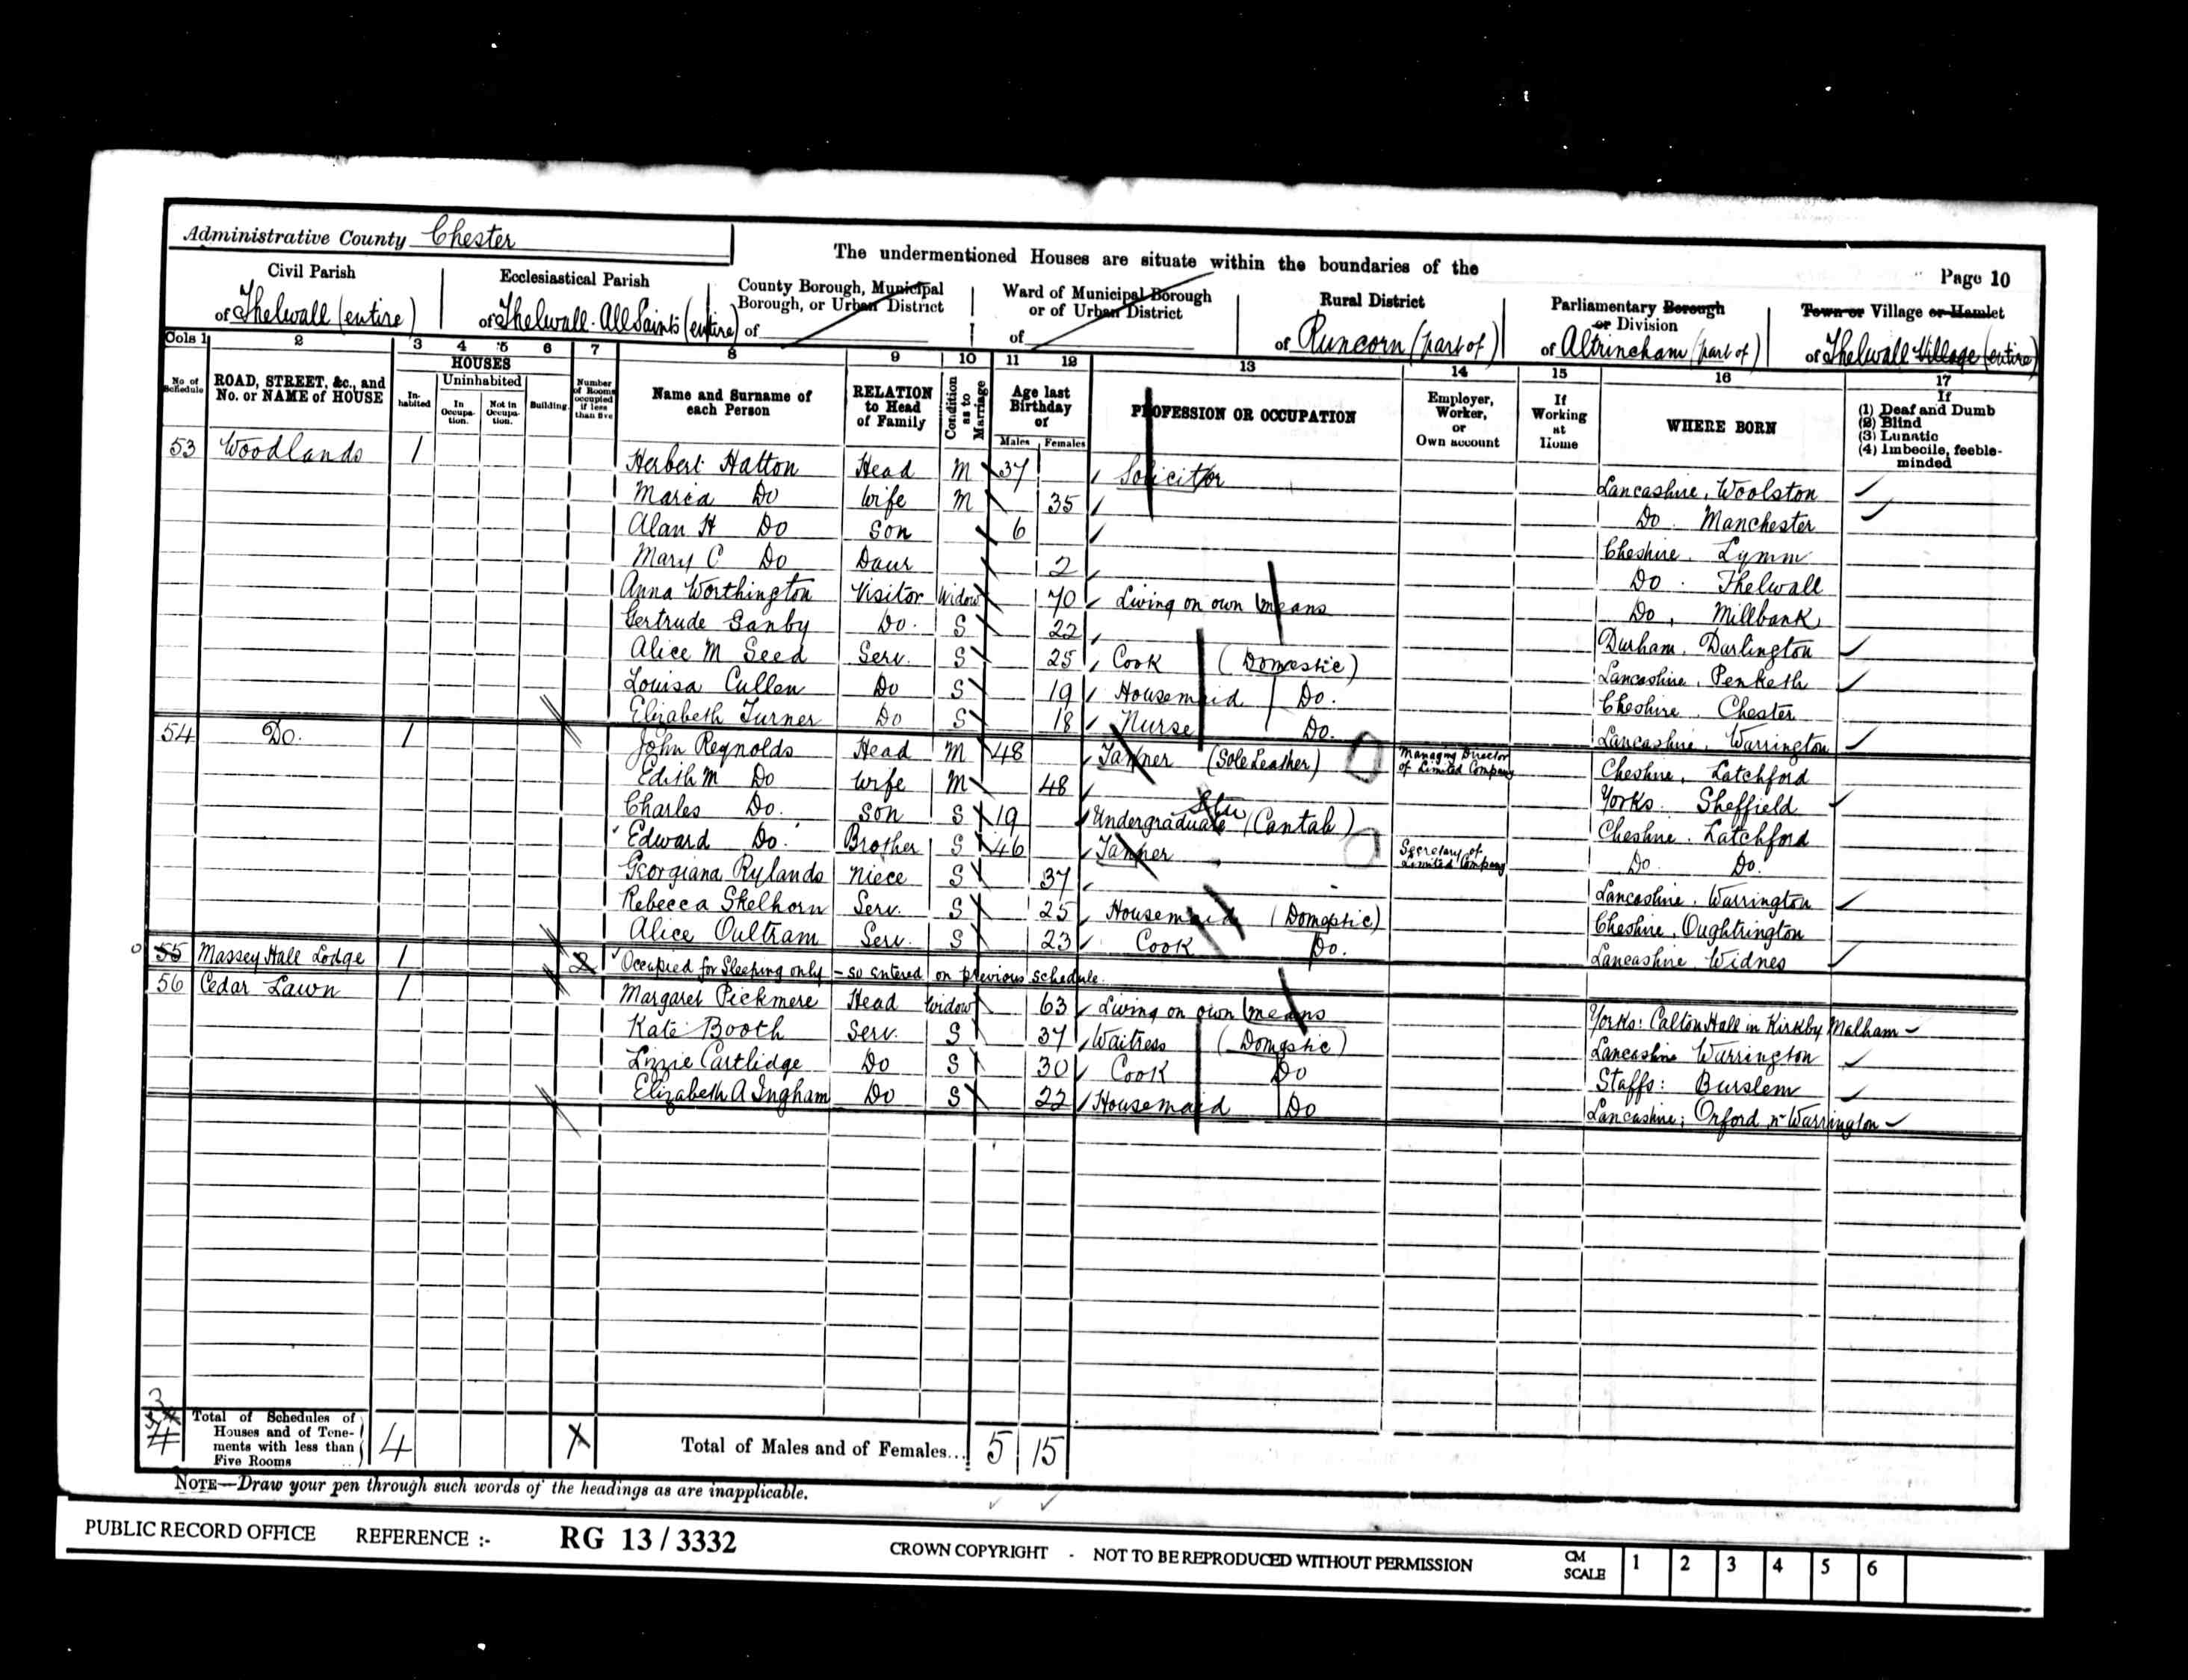 Administrative County Chester
The undermentioned Houses are situate within the boundaries of the
Page 10
Civil Parish of Thelwall (entire)
Ecclesiastical Parish of Thelwall. All Saints (entire)
County Borough, Municipal Borough, or Urban District of
Ward of Municipal Borough or of Urban District of
Rural District of Runcorn (part of)
Parliamentary Borough or Division of Altrincham (part of)
Town or Village or Hamlet of Thelwall Village (entire)
Cols 1 2 3 4 5 6 7 8 9 10 11 12 13 14 15 16 17
No of Schedule
ROAD, STREET, &c., and No. or NAME of HOUSE
HOUSES
In-habited
Uninhabited
In Occupa-tion.
Not in Occupa-tion.
Building
Number of Rooms occupied if less than five
Name and Surname of each Person
RELATION to Head of Family
Condition as to Marriage
Age last Birthday of
Males Females
PROFESSION OR OCCUPATION
Employer, Worker, or Own account
If Working at Home
WHERE BORN
If (1) Deaf and Dumb (2) Blind (3) Lunatic (4) Imbecile, feeble-minded
53 Woodlands 1 Herbert Hatton Head M 37 Solicitor Lancashire, Woolston
Maria Do Wife M 35 Do. Manchester
Alan H Do Son 6 Cheshire. Lymm
Mary C Do Daur 2 Do. Thelwall
Anna Worthington Visitor Widow 70 Living on own means Do, Millbank
Gertrude Sanby Do. S 22 Durham, Darlington
Alice M Seed Serv. S 25 Cook (Domestic) Lancashire, Penketh
Louisa Cullen Do S 19 Housemaid Do. Cheshire, Chester
Elizabeth Turner Do S 18 Nurse Do. Lancashire, Warrington
54 Do. 1 John Reynolds Head M 48 Tanner (Sole Leather) Managing Director of Limited Company Cheshire, Latchford
Edith M Do Wife M 48 Yorks. Sheffield
Charles Do. Son S 19 Undergraduate (Cantab) Stu Cheshire. Latchford
Edward Do. Brother S 46 Tanner Secretary of Limited Company Do. Do.
Georgiana Rylands Niece S 37 Lancashire, Warrington
Rebecca Skelhorn Serv. S 25 Housemaid (Domestic) Cheshire, Oughtrington
Alice Oultram Serv. S 23 Cook Do. Lancashire, Widnes
55 Massey Hall Lodge 1 2 Occupied for Sleeping only - so entered on previous schedule.
56 Cedar Lawn 1 Margaret Pickmere Head Widow 63 Living on own means Yorks: Calton Hall in Kirkby Malham
Kate Booth Serv. S 37 Waitress (Domestic) Lancashire Warrington
Lizzie Cartlidge Do S 30 Cook Do Staffs: Burslem
Elizabeth A Ingham Do S 22 Housemaid Do Lancashire; Orford nr Warrington
Total of Schedules of Houses and of Tene-ments with less than Five Rooms 4
Total of Males and of Females... 5 15
NOTE—Draw your pen through such words of the headings as are inapplicable.
PUBLIC RECORD OFFICE REFERENCE :- RG 13 / 3332 CROWN COPYRIGHT - NOT TO BE REPRODUCED WITHOUT PERMISSION CM SCALE 1 2 3 4 5 6